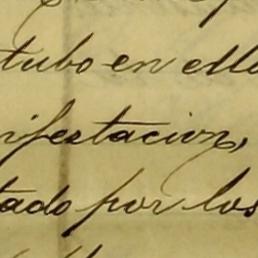 tubo en ella
nifestacion,
tado por los